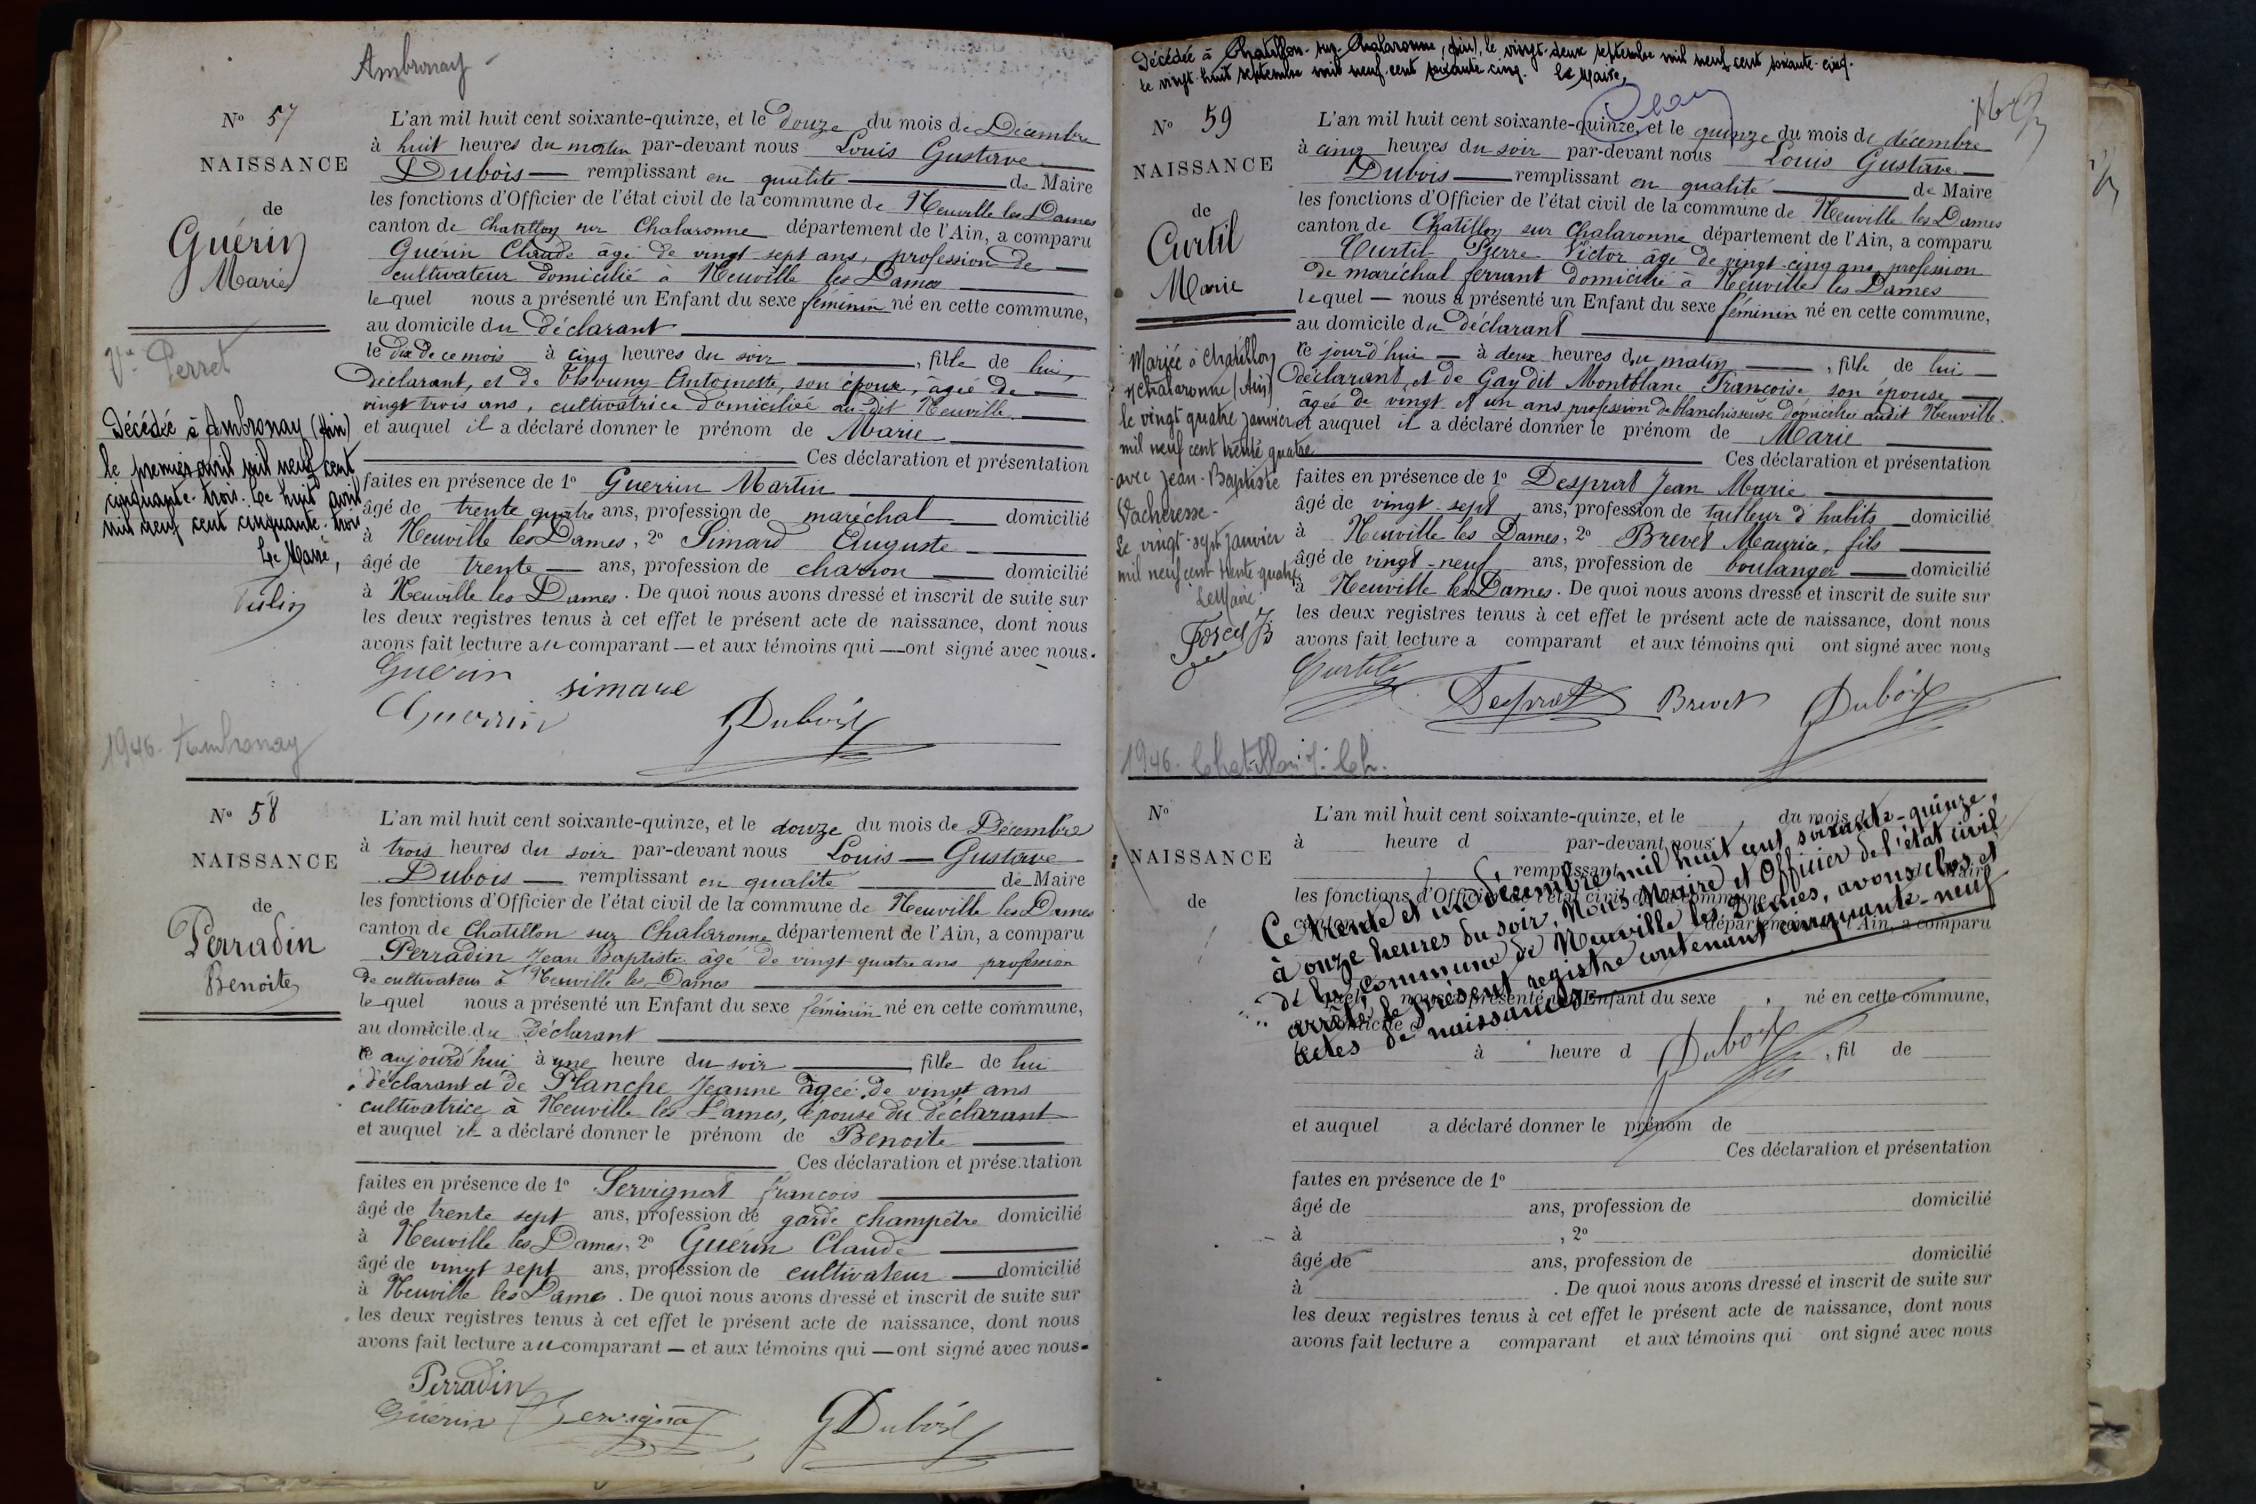 Ambronay
N° 57
NAISSANCE
de
Guérin
Marie
Vve Perret
Décédée à Ambronay (Ain)
le premier avril mil neuf cent
cinquante-trois. Le huit avril
mil neuf cent cinquante-trois
Le Maire,
1946. Ambronay
L'an mil huit cent soixante-quinze, et le douze du mois de Décembre
à huit heures du matin par-devant nous Louis Gustave
Dubois remplissant en qualité de Maire
les fonctions d'Officier de l'état civil de la commune de Neuville les Dames
canton de Chatillon sur Chalaronne département de l'Ain, a comparu
Guérin Claude âgé de vingt sept ans, profession de
cultivateur domicilié à Neuville les Dames
lequel nous a présenté un Enfant du sexe féminin né en cette commune,
au domicile du déclarant
le dix de ce mois à cinq heures du soir, fille de lui,
déclarant, et de Antoinette, son épouse, âgée de
vingt trois ans, cultivatrice domiciliée au dit Neuville
et auquel il a déclaré donner le prénom de Marie
Ces déclaration et présentation
faites en présence de 1° Guerrin Martin
âgé de trente quatre ans, profession de maréchal domicilié
à Neuville les Dames, 2° Simard Auguste
âgé de trente ans, profession de charron domicilié
à Neuville les Dames. De quoi nous avons dressé et inscrit de suite sur
les deux registres tenus à cet effet le présent acte de naissance, dont nous
avons fait lecture au comparant et aux témoins qui ont signé avec nous.
Guérin simare
Guerrin GDubois
N° 58
NAISSANCE
de
Perradin
Benoite
L'an mil huit cent soixante-quinze, et le douze du mois de Décembre
à trois heures du soir par-devant nous Louis Gustave
Dubois remplissant en qualité de Maire
les fonctions d'Officier de l'état civil de la commune de Neuville les Dames
canton de Chatillon sur Chalaronne département de l'Ain, a comparu
Perradin Jean Baptiste âgé de vingt quatre ans profession
de cultivateur à Neuville les Dames
lequel nous a présenté un Enfant du sexe féminin né en cette commune,
au domicile du déclarant
ce aujourd'hui à une heure du soir fille de lui
déclarant et de Planche Jeanne âgée de vingt ans
cultivatrice à Neuville les Dames, épouse du déclarant
et auquel il a déclaré donner le prénom de Benoite
Ces déclaration et présentation
faites en présence de 1° Servignat françois
âgé de trente sept ans, profession de garde champêtre domicilié
à Neuville les Dames, 2° Guérin Claude
âgé de vingt sept ans, profession de cultivateur domicilié
à Neuville les Dames. De quoi nous avons dressé et inscrit de suite sur
les deux registres tenus à cet effet le présent acte de naissance, dont nous
avons fait lecture au comparant et aux témoins qui ont signé avec nous
Perradin
Guérin Servignat GDubois
Décédée à Chatillon-sur-Chalaronne, (Ain), le vingt-deux septembre mil neuf cent soixante-cinq.
le vingt-huit septembre mil neuf cent soixante cinq. Le Maire,
N° 59
NAISSANCE
de
Curtil
Marie
Mariée à Chatillon
s/Chalaronne (Ain)
le vingt quatre janvier
mil neuf cent trente quatre
avec Jean-Baptiste
Vacheresse.
Le vingt-sept janvier
mil neuf cent trente quatre
Le Maire.
L'an mil huit cent soixante-quinze, et le quinze du mois de décembre
à cinq heures du soir par-devant nous Louis Gustave
Dubois remplissant en qualité de Maire
les fonctions d'Officier de l'état civil de la commune de Neuville les Dames
canton de Chatillon sur Chalaronne département de l'Ain, a comparu
Curtil Pierre Victor âgé de vingt-cinq ans profession
de maréchal ferrant domicilié à Neuville les Dames
lequel nous a présenté un Enfant du sexe féminin né en cette commune,
au domicile du déclarant
ce jourd'hui à deux heures du matin, fille de lui
déclarant et de Gaydit Montblanc Françoise son épouse
âgée de vingt et un ans profession de blanchisseuse domiciliée audit Neuville
et auquel il a déclaré donner le prénom de Marie
Ces déclaration et présentation
faites en présence de 1° Desprat Jean Marie
âgé de vingt-sept ans, profession de tailleur d'habits domicilié
à Neuville les Dames, 2° Brevet Maurice, fils
âgé de vingt-neuf ans, profession de boulanger domicilié
à Neuville les Dames. De quoi nous avons dressé et inscrit de suite sur
les deux registres tenus à cet effet le présent acte de naissance, dont nous
avons fait lecture a comparant et aux témoins qui ont signé avec nous
Curtil Desprat Brevet GDubois
1946. Chatillon s. Ch.
N°
NAISSANCE
de
L'an mil huit cent soixante-quinze, et le du mois d
à heure d par-devant nous
remplissant de Maire
les fonctions d'Officier de l'état civil de la commune
canton département de l'Ain, a comparu
Ce trente et un décembre mil huit cent soixante-quinze,
à onze heures du soir, Nous Maire et Officier de l'état civil
de la Commune de Neuville les Dames, avons clos et
arrêté le présent registre contenant cinquante-neuf
actes de naissances
quel nous a présenté un Enfant du sexe né en cette commune,
domicile
à heure d, fil de
Dubois
et auquel a déclaré donner le prénom de
Ces déclaration et présentation
faites en présence de 1°
âgé de ans, profession de domicilié
à , 2°
âgé de ans, profession de domicilié
à . De quoi nous avons dressé et inscrit de suite sur
les deux registres tenus à cet effet le présent acte de naissance, dont nous
avons fait lecture a comparant et aux témoins qui ont signé avec nous